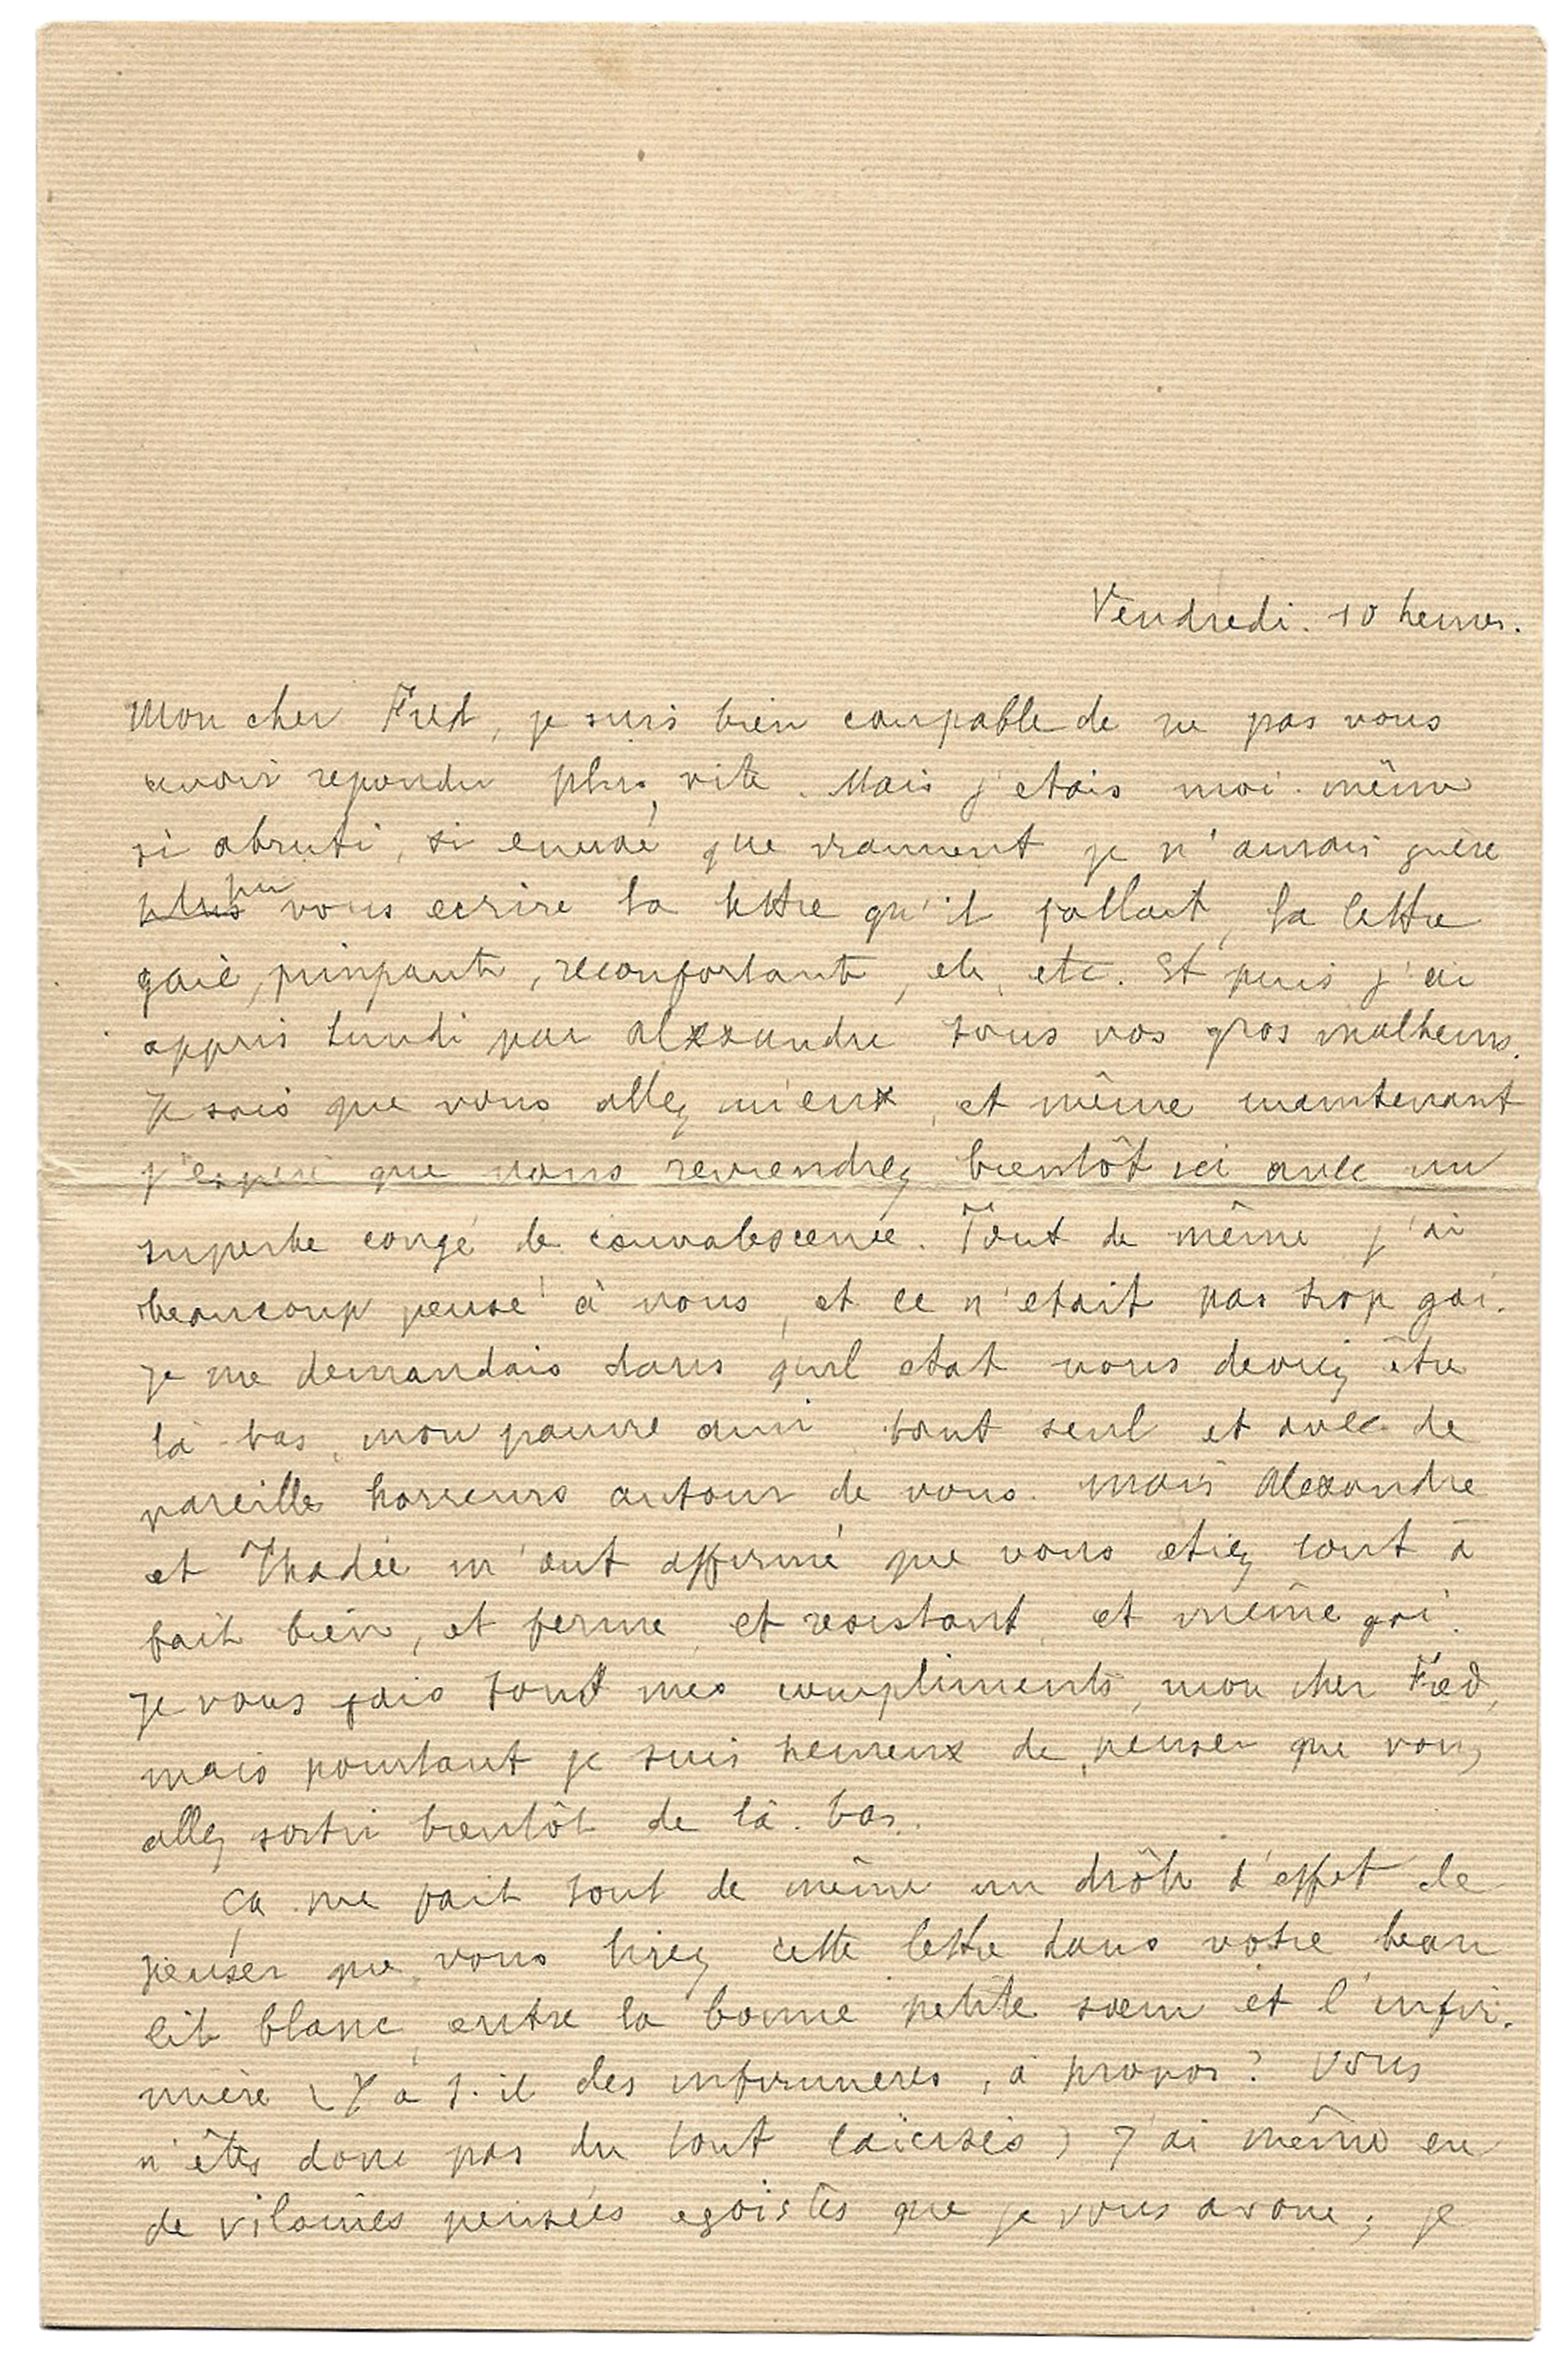 Vendredi. 10 heures.
Mon cher Fred, je suis bien coupable de ne pas vous
avoir repondu plus vite. Mais j'etais moi-même
si abruti, si que vraiment je n'aurais guère
plus pu vous ecrire la lettre qu'il fallait, la lettre
gaie, pimpante, reconfortante, etc, etc. Et puis j'ai
appris Lundi par Alexandre tous vos gros malheurs.
Je sais que vous allez mieux, et même maintenant
j'espere que vous reviendrez bientôt ici avec un
superbe congé de convalescence. Tout de même j'ai
beaucoup pensé à vous, et ce n'etait pas trop gai.
Je me demandais dans quel etat vous deviez être
là bas, mon pauvre ami tout seul et avec de
pareilles horreurs autour de vous. Mais Alexandre
et Thadée m'ont affirmé que vous etiez tout à
fait bien, et ferme, et resistant, et même gai.
Je vous fais tout mes compliments, mon cher Fred,
mais pourtant je suis heureux de penser que vous
allez sortir bientôt de là-bas.
Ça me fait tout de même un drôle d'effet de
penser que vous lirez cette lettre dans votre beau
lit blanc, entre la bonne petite sœur et l'infir-
mière (Y a t-il des infirmieres, à propos? Vous
n'êtes donc pas du tout laicisés) J'ai même eu
de vilaines pensées egoistes que je vous avoue; je